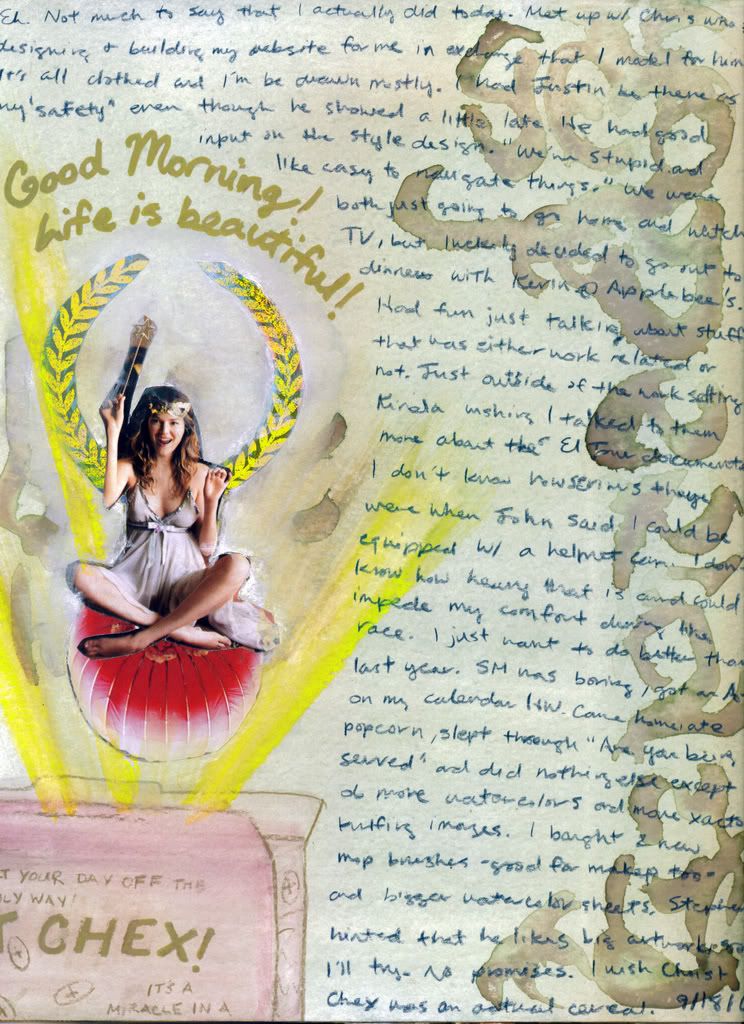 Eh. Not much to say that I actually did today. Met up w/ Chris who
designing & building my website for me in exchange that I model for him
It's all clothed and I'm be drawn mostly. I had Justin be there as
my "safety" even though he showed a little late. He had good
input on the style design. "We're stupid and
like easy to navigate things." We were
both just going to go home and watch
TV, but luckily decided to go out to
dinner with Kevin @ Applebee's.
Had fun just talking about stuff
that was either work related or
not. Just outside of the work setting
Kinda wishing I talked to them
more about the El Tour documentary
I don't know how serious they
were when John said I could be
equipped w/ a helmet cam. I don't
know how heavy that is and could
impede my comfort during the
race. I just want to do better than
last year. SM was boring, got an A
on my calendar HW. Came home, ate
popcorn, slept through "Are you being
served" and did nothing else except
do more watercolors and more xacto
knifing images. I bought 2 new
mop brushes - good for makeup too -
and bigger watercolor sheets. Stephen
hinted that he likes big artworks so
I'll try. No promises. I wish Christ
Chex was an actual cereal. 9/18/
Good Morning!
Life is beautiful!
YOUR DAY OFF THE
WAY!
CHEX!
IT'S A
MIRACLE IN A